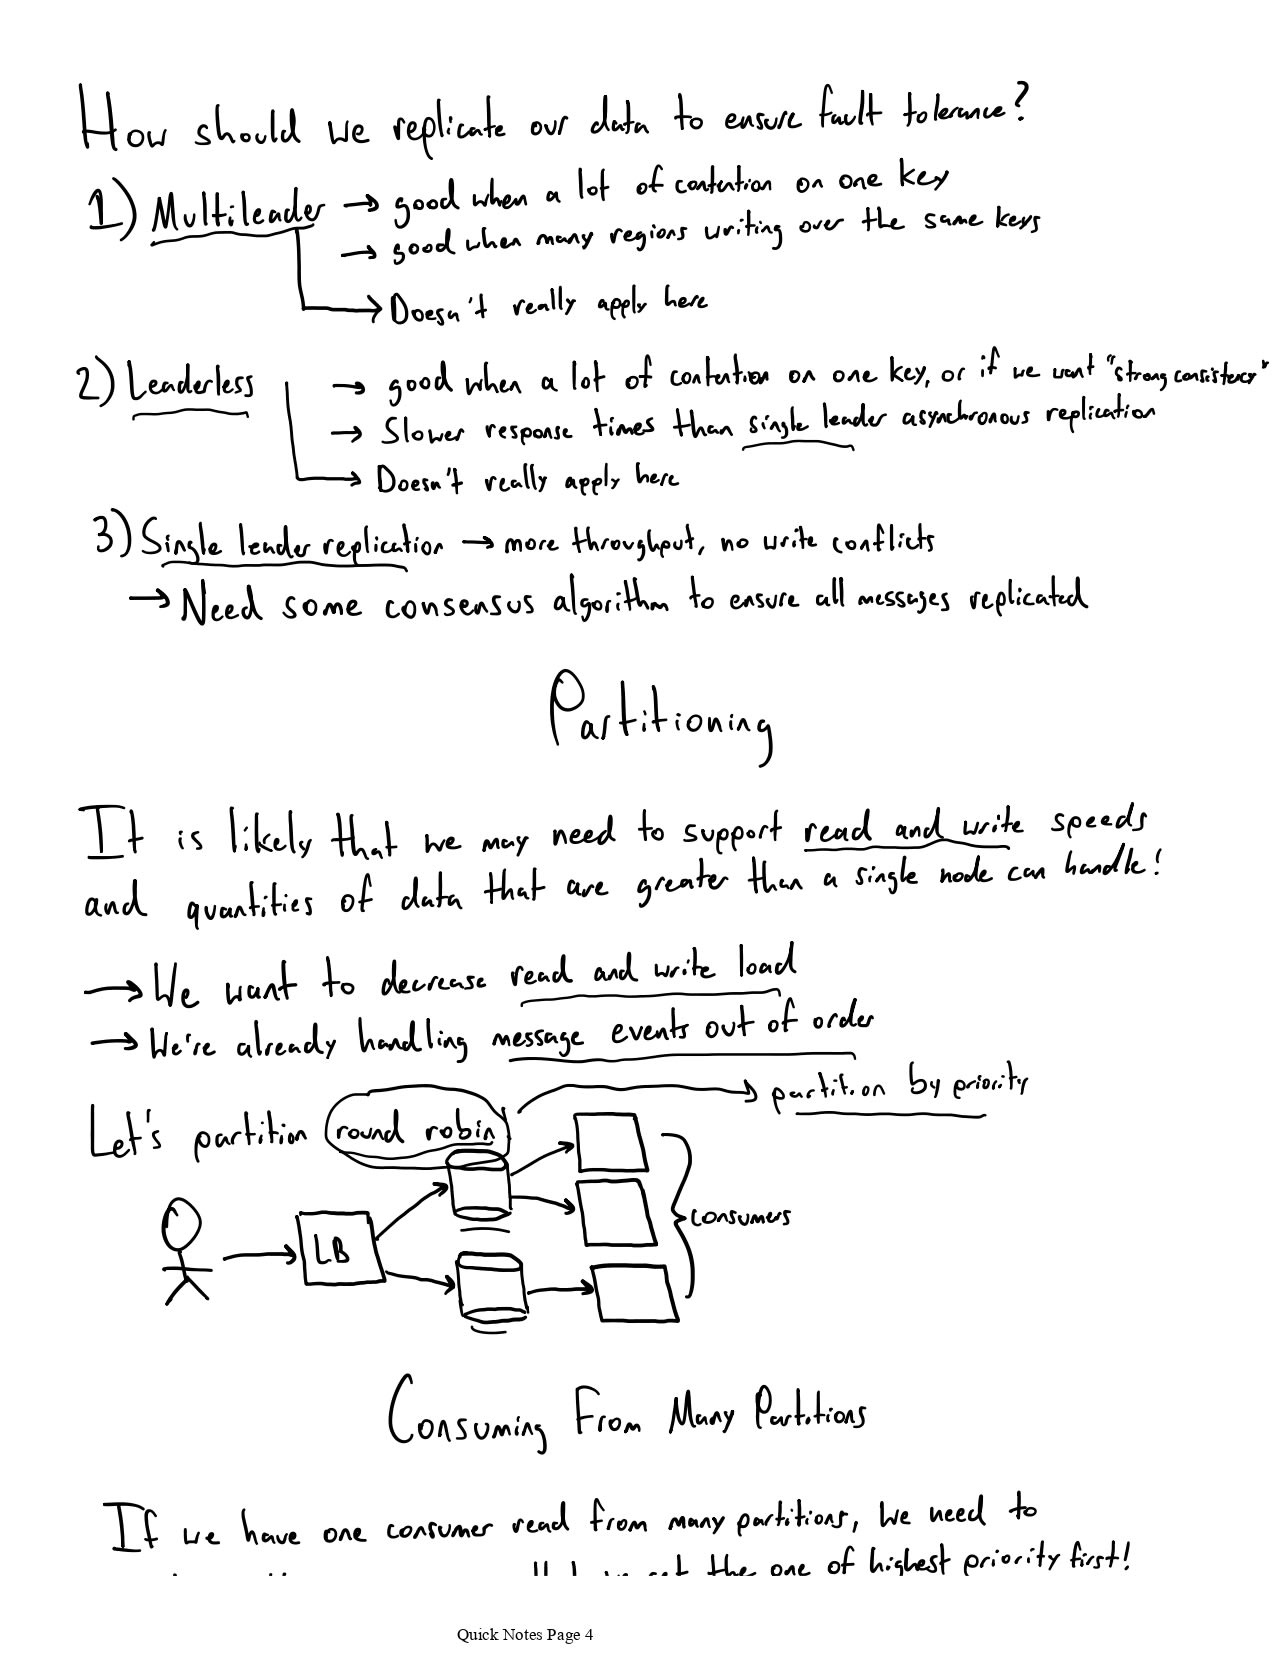 How should we replicate our data to ensure fault tolerance?
1) Multileader → good when a lot of contention on one key
→ good when many regions writing over the same keys
→ Doesn't really apply here
2) Leaderless → good when a lot of contention on one key, or if we want "strong consistency"
→ Slower response times than single leader asynchronous replication
→ Doesn't really apply here
3) Single leader replication → more throughput, no write conflicts
→ Need some consensus algorithm to ensure all messages replicated
Partitioning
It is likely that we may need to support read and write speeds
and quantities of data that are greater than a single node can handle!
→ We want to decrease read and write load
→ We're already handling message events out of order
→ partition by priority
Let's partition round robin
LB
consumers
Consuming From Many Partitions
If we have one consumer read from many partitions, we need to
the one of highest priority first!
Quick Notes Page 4